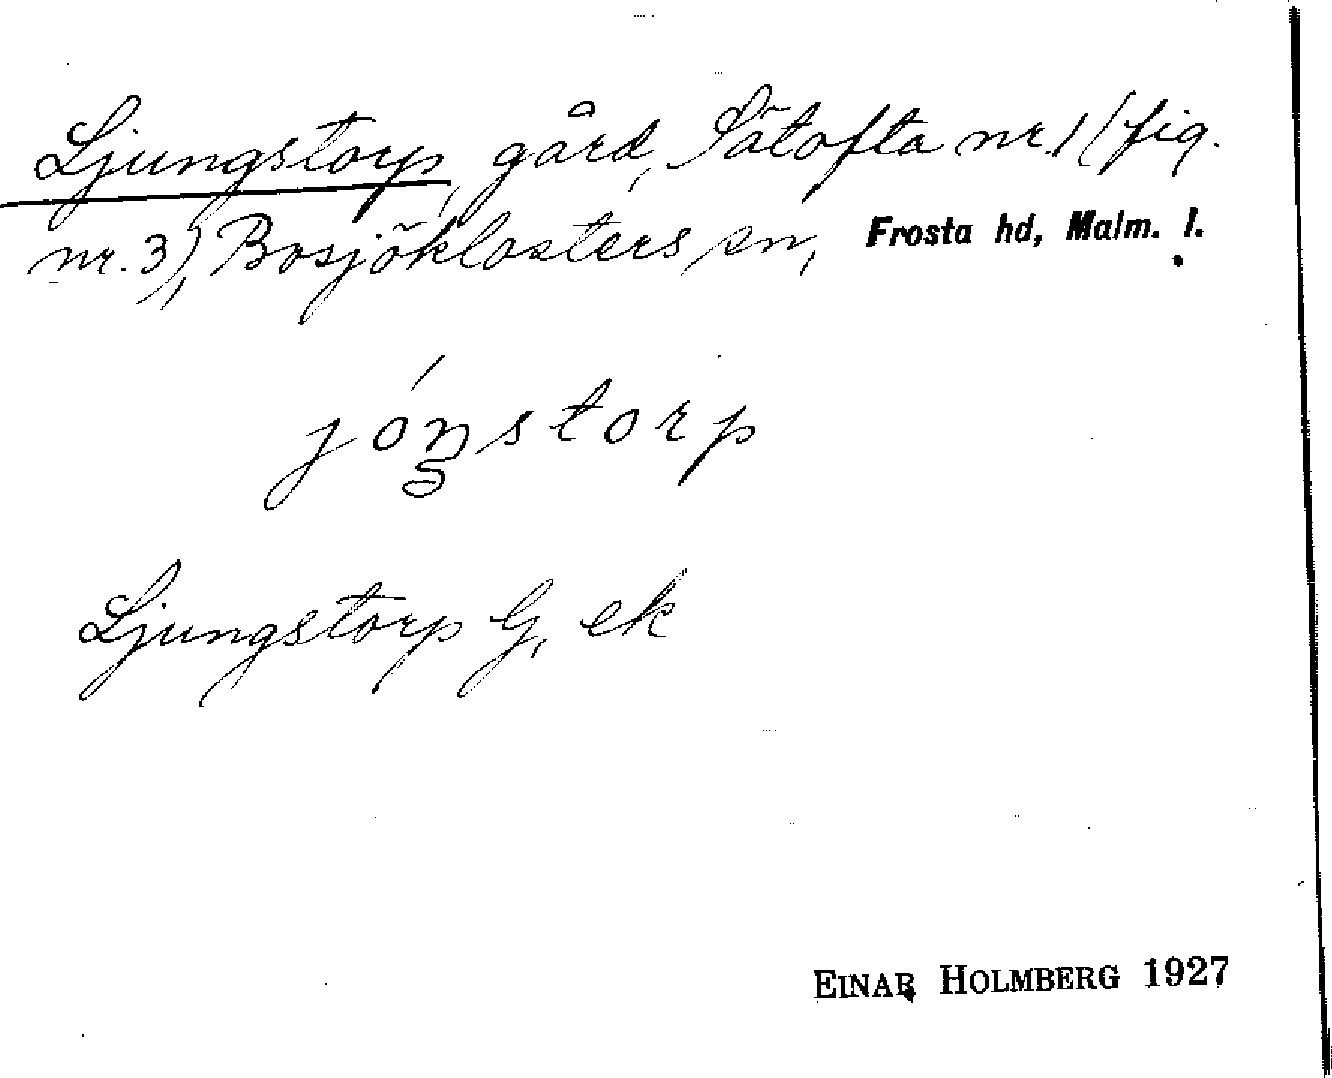 Ljungstorp, gård, Sätofta nr. 1 (fig.
nr. 3), Bosjöklosters sn, Frosta hd, Malm. l.
jóŋstorp
Ljungstorp G, ek
EINAR HOLMBERG 1927